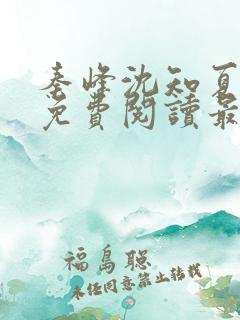 秦峰沈知夏
免費閱讀最
福島聰
未任同意禁止转载